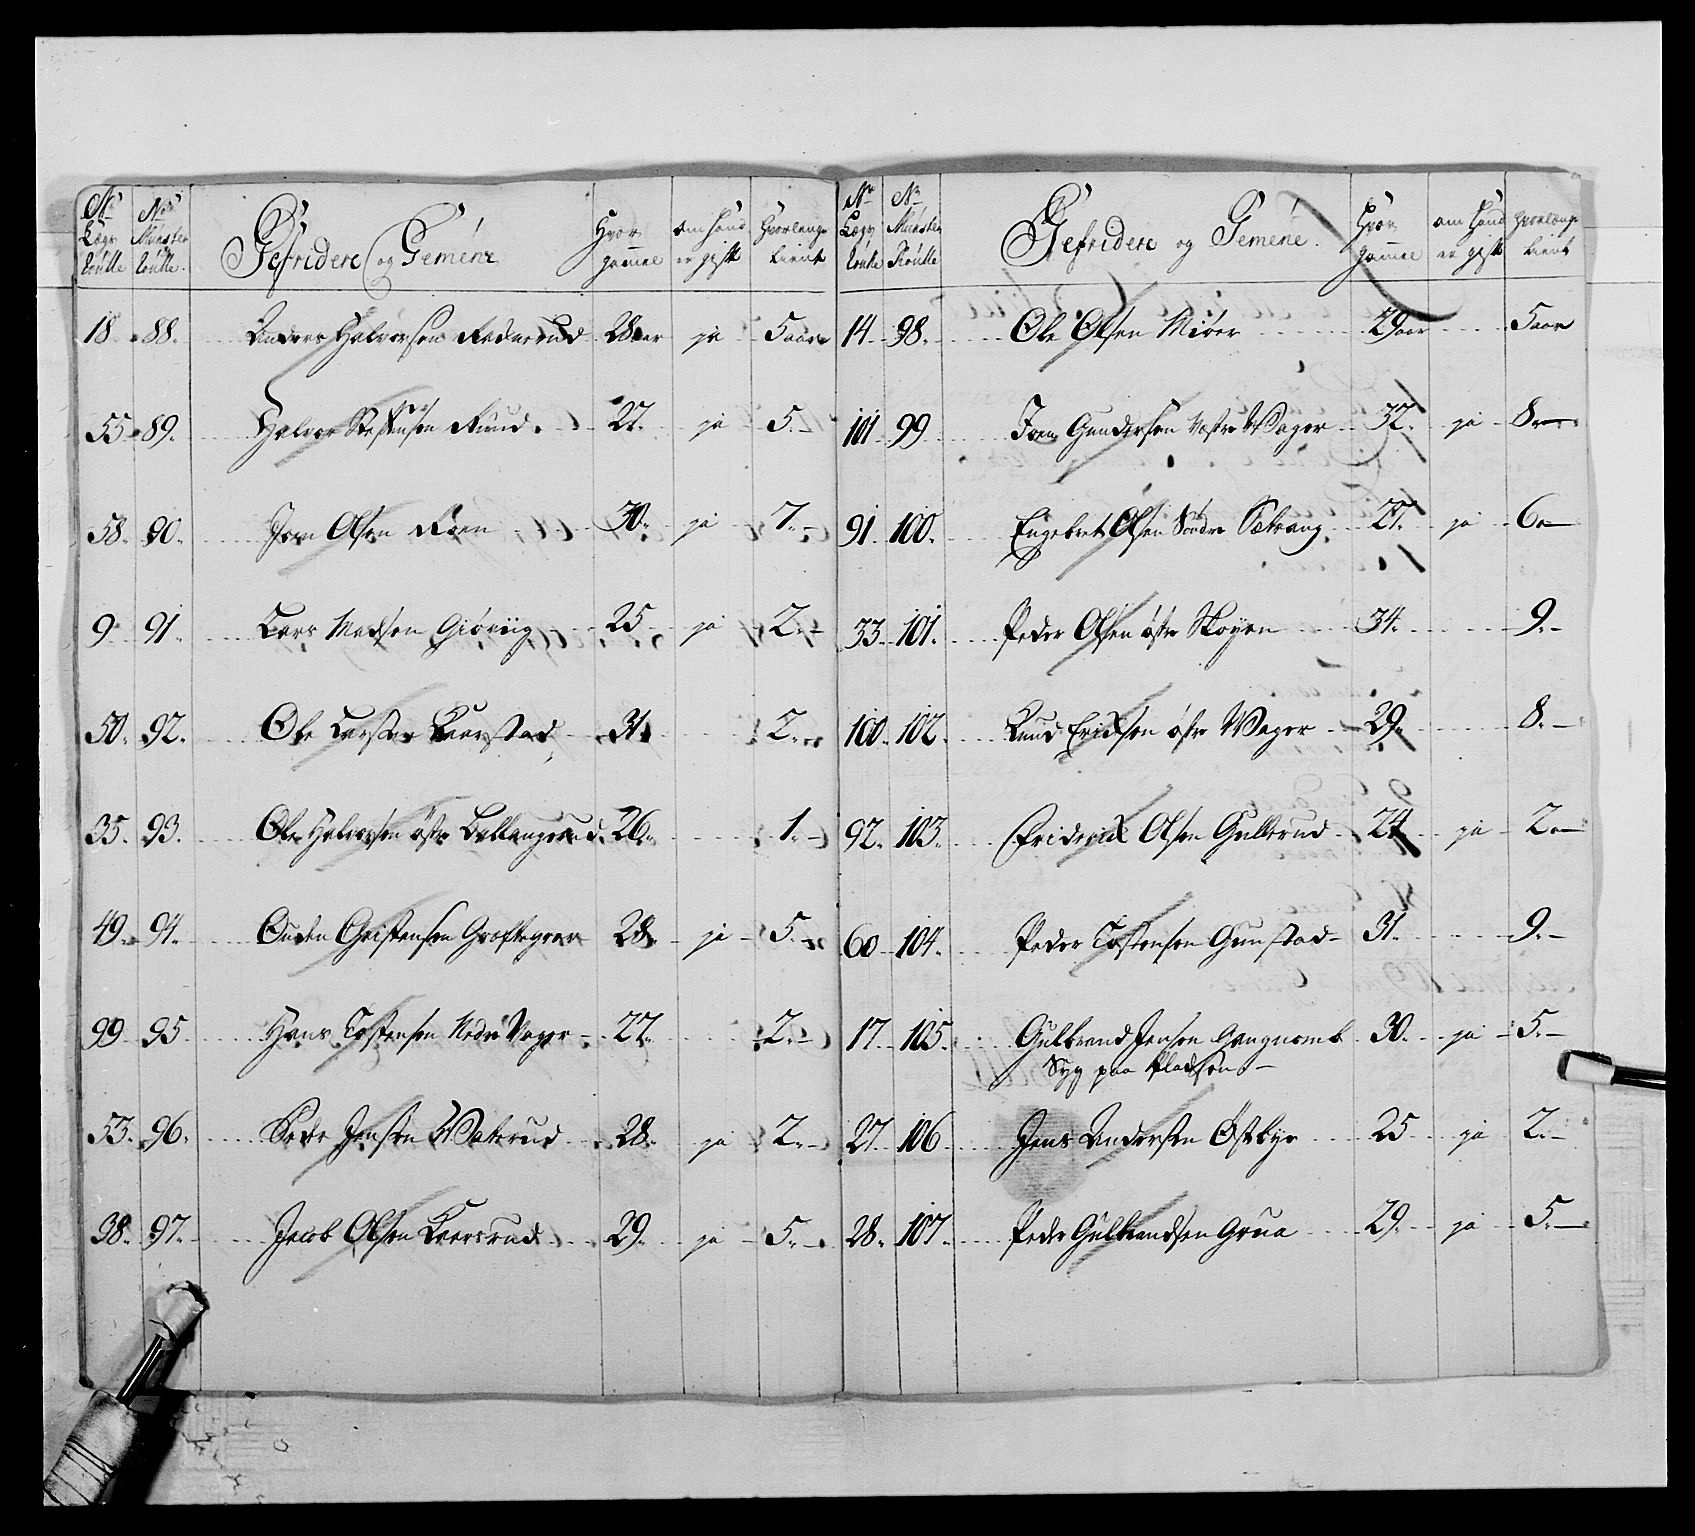 No Lægs Roulle | No Mønster Roulle | Gefridere og Gemene | Hvor gammel | om hand er gift | Hvorlenge tient
18 88. Anders Halvorsen Rederud 28 aar ja 5 aar
55 89. Halvor Steffensen Ruud 27. ja 5.
58. 90. Joen Olsen Roen 30. ja 7.
9 91 Lars Madsen Giøviig 25 ja 2.
50. 92. Ole Larsen Kaarstad 31 2.
35. 93. Ole Halvorsen østre Ballangrud 26. 1.
49. 94. Ouden Christensen Grøftegrav 28. ja 5.
99 95 Hans Tostensen Nedre Vager 27. 2.
53. 96. Peder Jensen Waterud 28. ja 2.
38. 97. Jacob Olsen Kaarsrud 29. ja 5.
No Lægs Roulle | No Mønster Roulle | Gefridere og Gemene. | Hvor gammel | om hand er gift | hvorlenge tient
14 98. Ole Olsen Mioer 29 aar 5 aar
101 99 Joen Gundersen Vestre Wager 32. ja 8
91. 100. Engebret Olsen Søndre Sætrang 27. ja 6
33. 101. Peder Olsen østre Skoyen 34. 9.
100. 102. Knud Erichsen østre Wager 29. 8.
92. 103. Friderich Olsen Gulbrud 24 ja 2.
60 104. Peder Tostensen Gunstad 31. 9.
17 105. Gulbrand Jensen 30. ja 5.
Syg paa Pladsen
27. 106 Jens Andersen Østbye 25 ja 2.
28. 107. Peder Gulbrandsen Grua 29. ja 5.